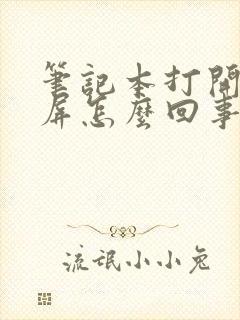 筆記本打開
屏怎麼回事
流氓小小兔